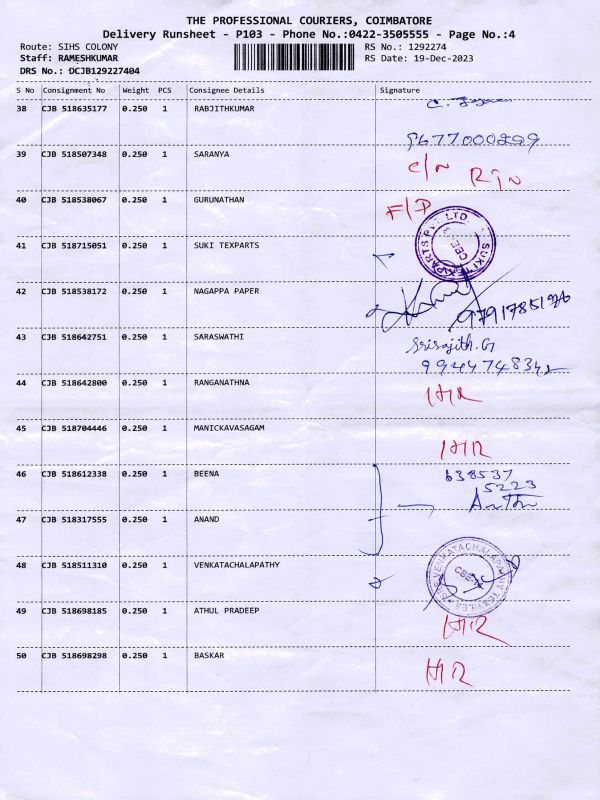 THE PROFESSIONAL COURIERS, COIMBATORE
Delivery Runsheet - P103 - Phone No.:0422-3505555 - Page No.:4
Route: SIHS COLONY RS No.: 1292274
Staff: RAMESHKUMAR RS Date: 19-Dec-2023
DRS No.: DCJB129227404
S No Consignment No Weight PCS Consignee Details Signature
38 CJB 518635177 0.250 1 RABJITHKUMAR
9677000299
39 CJB 518507348 0.250 1 SARANYA C/N RTN
40 CJB 518538067 0.250 1 GURUNATHAN F/D
41 CJB 518715051 0.250 1 SUKI TEXPARTS SUKI TEXPARTS PVT LTD CBE
42 CJB 518538172 0.250 1 NAGAPPA PAPER
43 CJB 518642751 0.250 1 SARASWATHI Srisajith.G
9944748342
44 CJB 518642800 0.250 1 RANGANATHNA HR
45 CJB 518704446 0.250 1 MANICKAVASAGAM HR
46 CJB 518612338 0.250 1 BEENA 638537
5223
47 CJB 518317555 0.250 1 ANAND
48 CJB 518511310 0.250 1 VENKATACHALAPATHY VENKATACHALAPATHY TEXTILES CBE
49 CJB 518698185 0.250 1 ATHUL PRADEEP HR
50 CJB 518698298 0.250 1 BASKAR HR